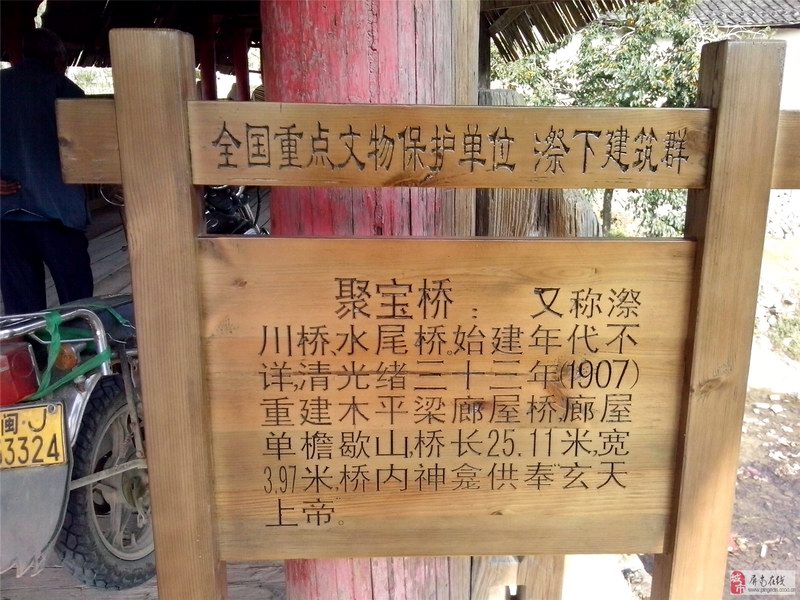 全国重点文物保护单位 漈下建筑群
聚宝桥：又称漈
川桥、水尾桥。始建年代不
详,清光绪三十三年(1907)
重建木平梁廊屋桥,廊屋
单檐歇山,桥长25.11米,宽
3.97米,桥内神龛供奉玄天
上帝。
闽J
33324
屏南在线